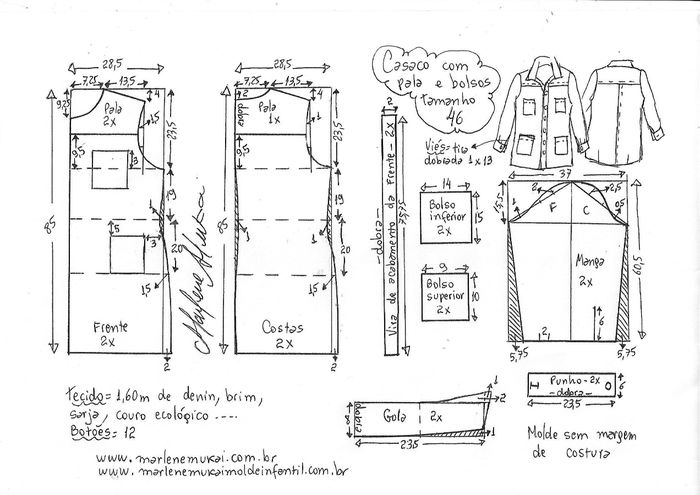 28,5
7,25
13,5
9,25
Pala
2x
4
1,5
23,5
9,5
3
19
85
1
5
3
20
1,5
Frente
2x
2
Marlene Mukai
28,5
7,25
13,5
2
dobra
Pala
1x
4
1
23,5
9,5
19
85
1
1
20
1,5
Costas
2x
2
Casaco com
pala e bolsos
tamanho
46
Viés=tira
dobrada 1x13
2
Vira de acabamento da Frente - 2x
-dobra-
75,75
14
Bolso
inferior
2x
15
9
Bolso
superior
2x
10
37
15,5
1
2
F
C
2,5
0,5
Manga
2x
60,5
6
2
5,75
5,75
Punho-2x
-dobra-
6
23,5
dobra
8
Gola
2x
1
2
1
23,5
Molde sem margem
de costura
Tecido= 1,60m de denin, brim,
sarja, couro ecológico ----
Botões= 12
www.marlenemukai.com.br
www.marlenemukaimoldeinfantil.com.br